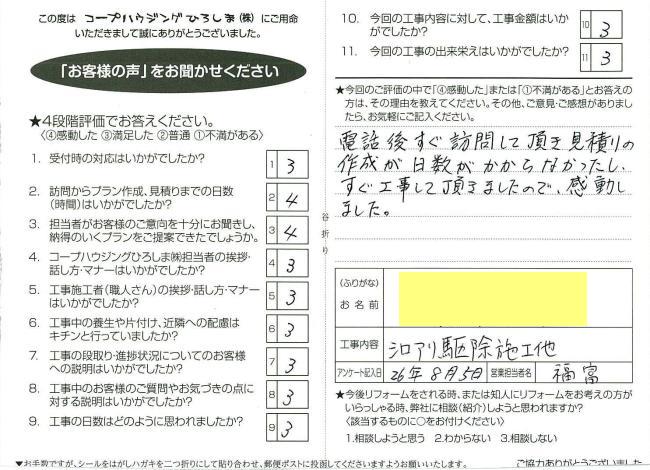 この度は コープハウジングひろしま(株) にご用命
いただきまして誠にありがとうございました。
「お客様の声」をお聞かせください
★4段階評価でお答えください。
〈④感動した ③満足した ②普通 ①不満がある〉
1. 受付時の対応はいかがでしたか? 1 3
2. 訪問からプラン作成、見積りまでの日数
(時間)はいかがでしたか? 2 4
3. 担当者がお客様のご意向を十分にお聞きし、
納得のいくプランをご提案できたでしょうか。 3 4
4. コープハウジングひろしま㈱担当者の挨拶・
話し方・マナーはいかがでしたか? 4 3
5. 工事施工者(職人さん)の挨拶・話し方・マナー
はいかがでしたか? 5 3
6. 工事中の養生や片付け、近隣への配慮は
キチンと行っていましたか? 6 3
7. 工事の段取り・進捗状況についてのお客様
への説明はいかがでしたか? 7 3
8. 工事中のお客様のご質問やお気づきの点に
対する説明はいかがでしたか? 8 3
9. 工事の日数はどのように思われましたか? 9 3
▼お手数ですが、シールをはがしハガキを二つ折りにして貼り合わせ、郵便ポストに投函してくださいますようお願いいたします。
谷折り
10. 今回の工事内容に対して、工事金額はいか
がでしたか? 10 3
11. 今回の工事の出来栄えはいかがでしたか? 11 3
★今回のご評価の中で「④感動した」または「①不満がある」とお答えの
方は、その理由を教えてください。その他、ご意見・ご感想がありまし
たら、お気軽にご記入ください。
電話後すぐ訪問して頂き見積りの
作成が日数がかからなかったし、
すぐ工事して頂きましたので、感動し
ました。
(ふりがな)
お名前
工事内容 シロアリ駆除施工他
アンケート記入日 26年8月5日 営業担当者名 福富
★今後リフォームをされる時、または知人にリフォームをお考えの方が
いらっしゃる時、弊社に相談(紹介)しようと思われますか?
〈該当するものに○をお付けください〉
1.相談しようと思う 2.わからない 3.相談しない
ご協力ありがとうございました